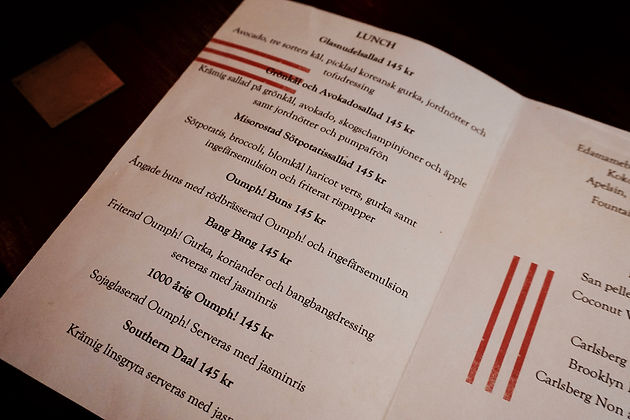 LUNCH
Glasnudelsallad 145 kr
Avocado, tre sorters kål, picklad koreansk gurka, jordnötter och
tofudressing
Grönkål och Avokadosallad 145 kr
Krämig sallad på grönkål, avokado, skogschampinjoner och äpple
samt jordnötter och pumpafrön
Misorostad Sötpotatissallad 145 kr
Sötpotatis, broccoli, blomkål haricot verts, gurka samt
ingefärsemulsion och friterat rispapper
Oumph! Buns 145 kr
Ångade buns med rödbrässerad Oumph! och ingefärsemulsion
Bang Bang 145 kr
Friterad Oumph! Gurka, koriander och bangbangdressing
serveras med jasminris
1000 årig Oumph! 145 kr
Sojaglaserad Oumph! Serveras med jasminris
Southern Daal 145 kr
Krämig linsgryta serveras med jasm
Edamameb
Kok
Apelsin,
Fountai
San pelle
Coconut
Carlsberg
Brooklyn
Carlsberg Non